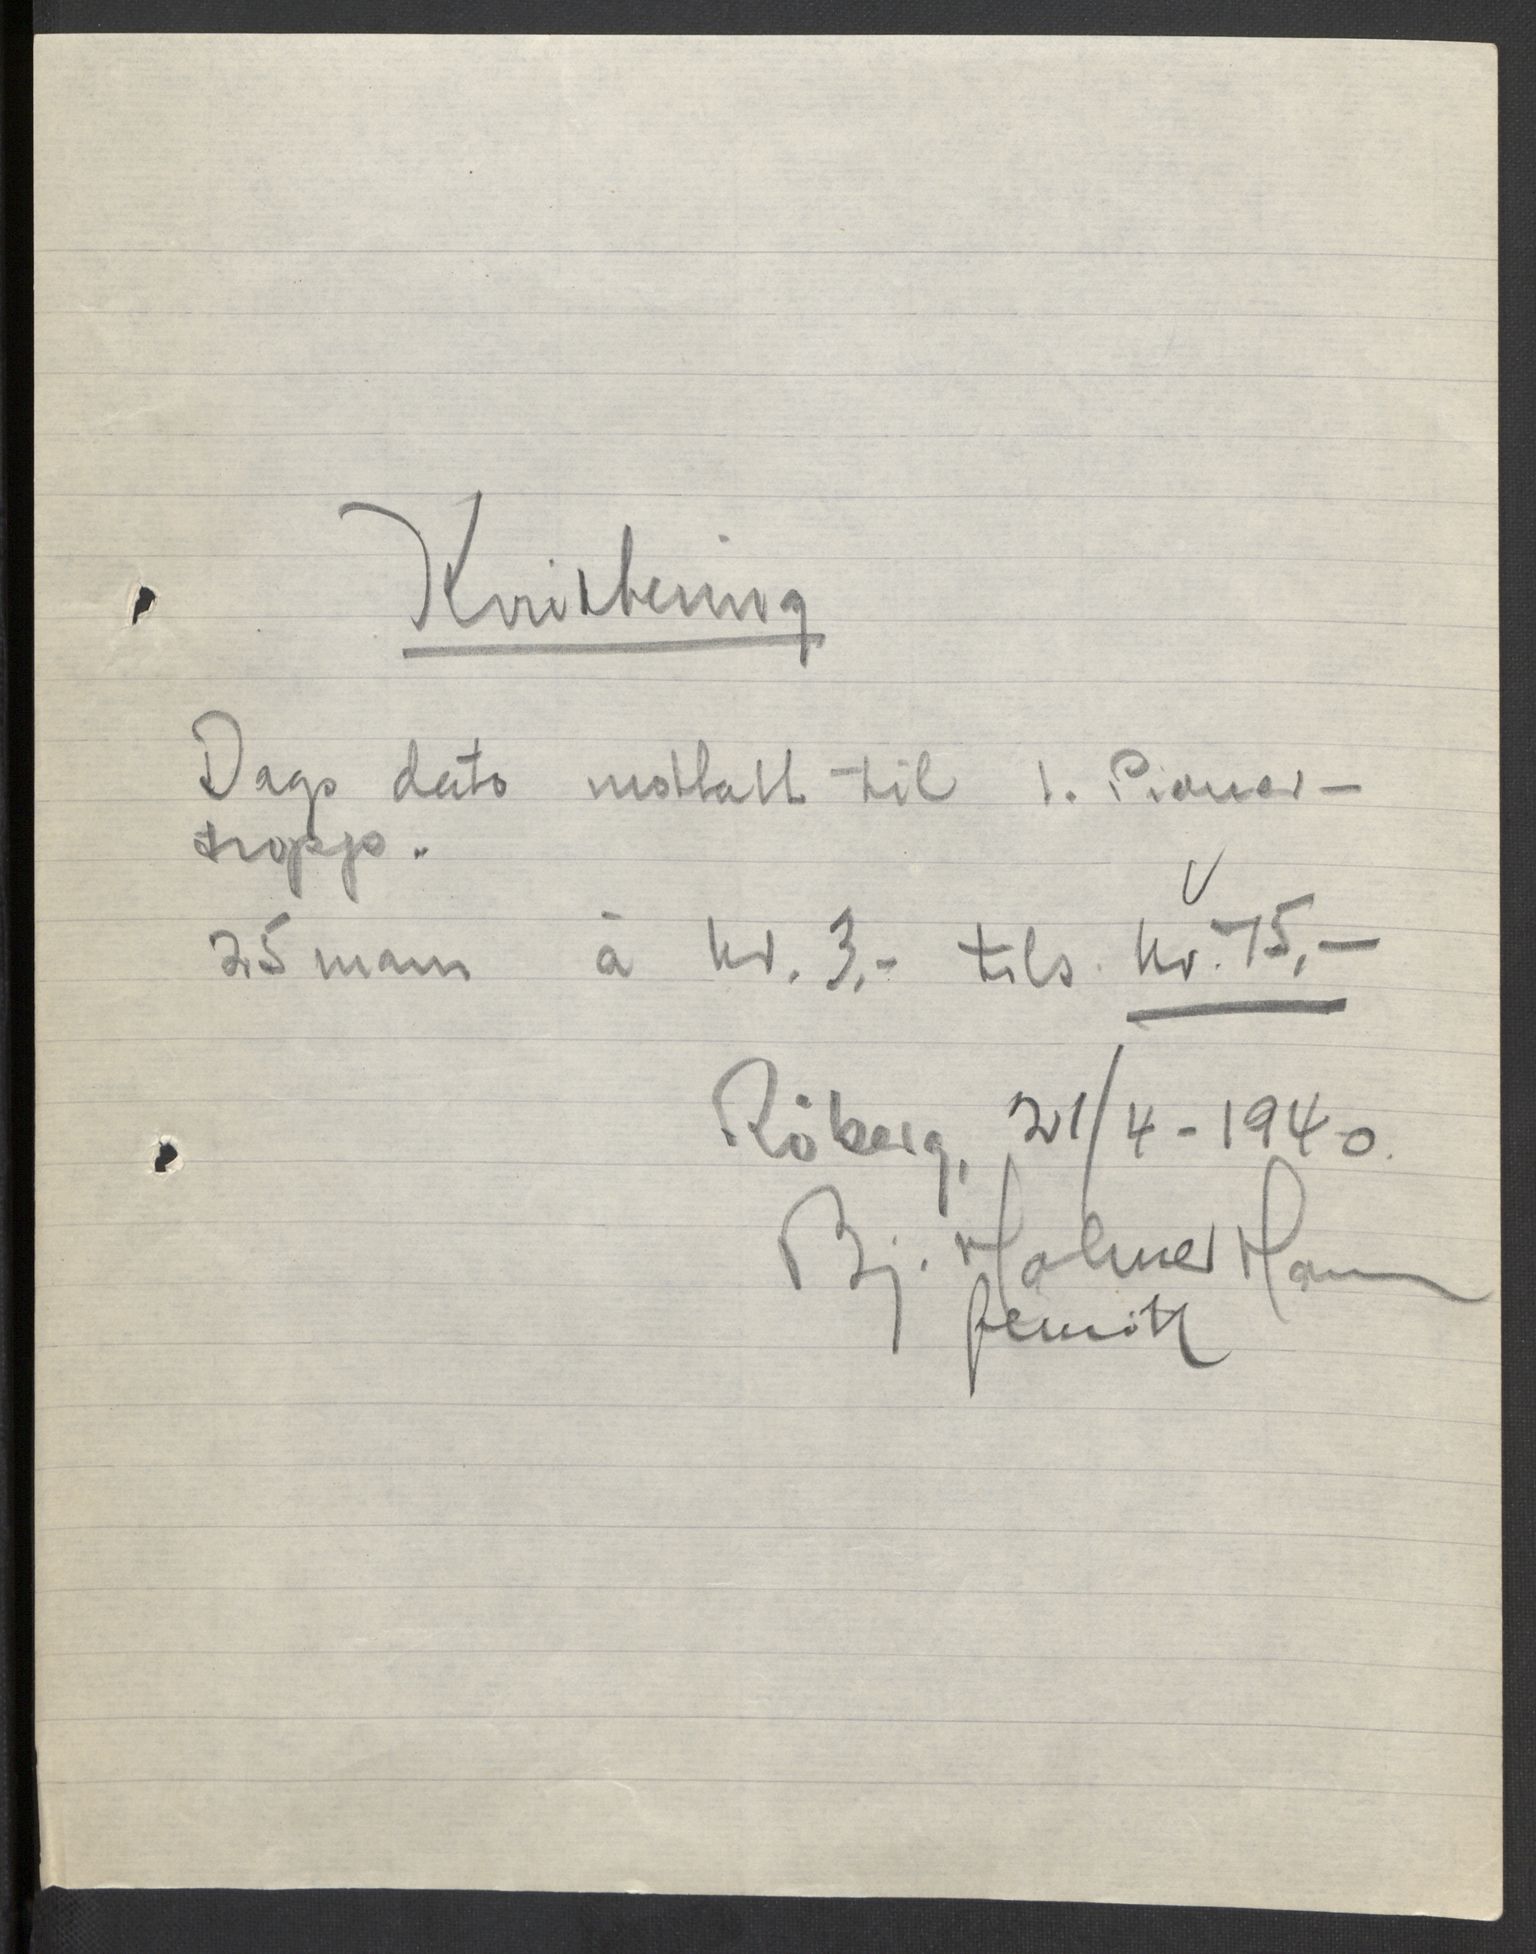 Kvittering
Dags dato mottatt til 1. Pioner-
tropp.
25 mann à kr. 3,- tils. kr. 75,-
Råberg, 21/4-1940.
Bj. Holmer Hoven
fenrik